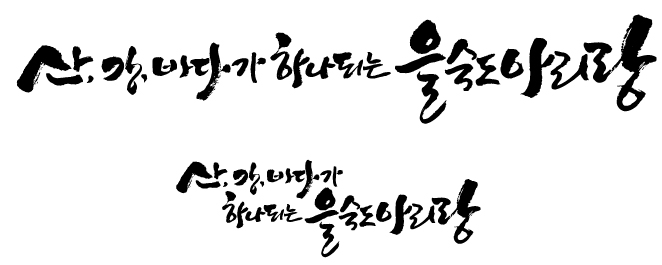 산, 강, 바다가 하나되는 을숙도아리랑
산, 강, 바다가
하나되는 을숙도아리랑